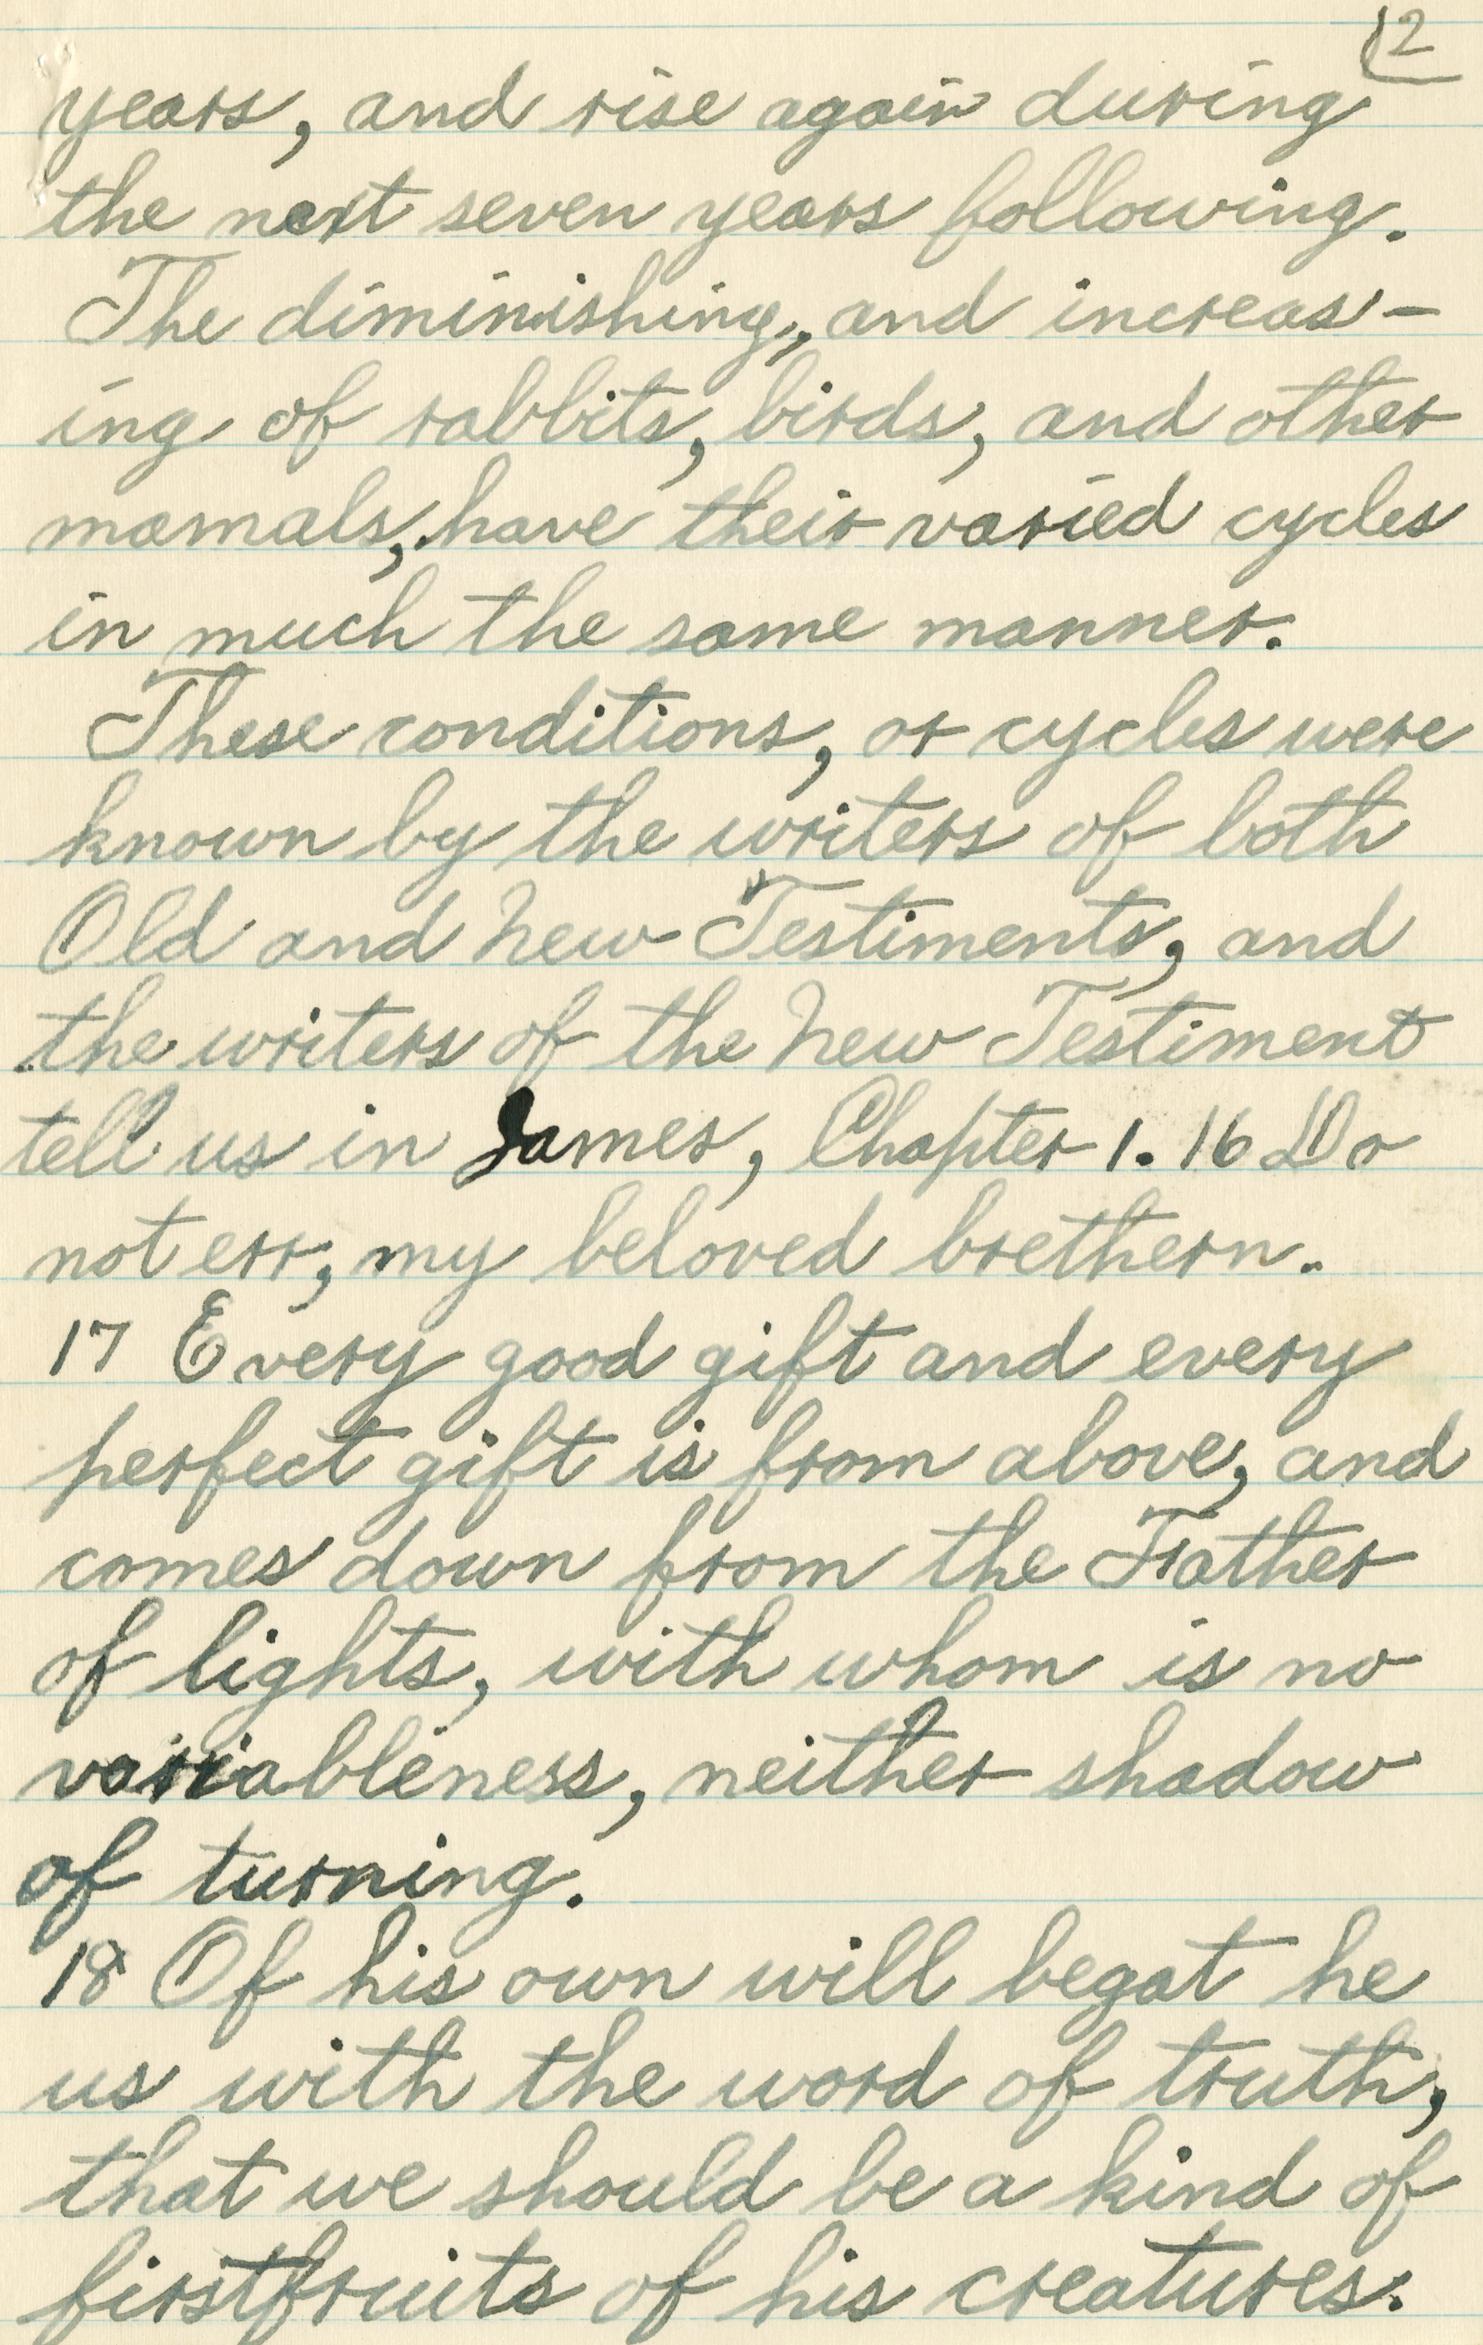 12
years, and rise again during
the next seven years following.
The diminishing, and increas-
ing of rabbits, birds, and other
mamals, have their varied cycles
in much the same manner.
These conditions, or cycles were
known by the writers of both
Old and New Testiments, and
the writers of the New Testiment
tell us in James, Chapter 1. 16 Do
not err, my beloved brethern.
17 Every good gift and every
perfect gift is from above, and
comes down from the Father
of lights, with whom is no
variableness, neither shadow
of turning.
18 Of his own will begat he
us with the word of truth,
that we should be a kind of
firstfruits of his creatures.